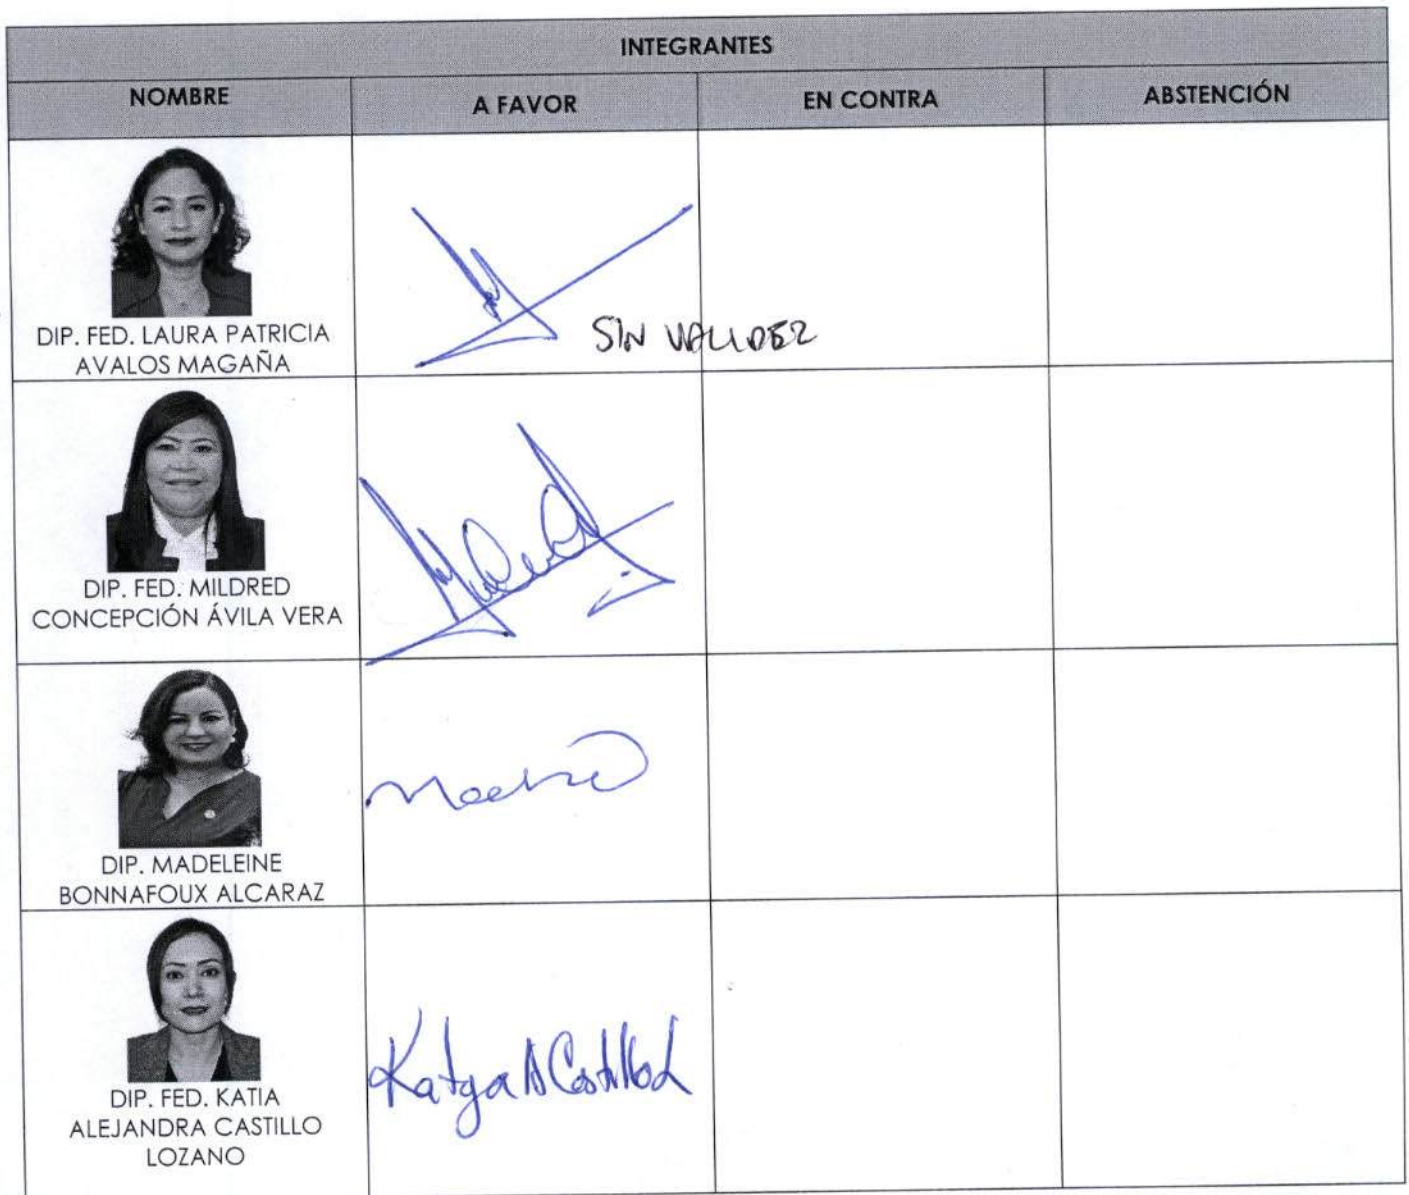 INTEGRANTES
NOMBRE A FAVOR EN CONTRA ABSTENCIÓN
DIP. FED. LAURA PATRICIA
AVALOS MAGAÑA
SIN VALIDEZ
DIP. FED. MILDRED
CONCEPCIÓN ÁVILA VERA
DIP. MADELEINE
BONNAFOUX ALCARAZ
DIP. FED. KATIA
ALEJANDRA CASTILLO
LOZANO
Katya A Castillo L